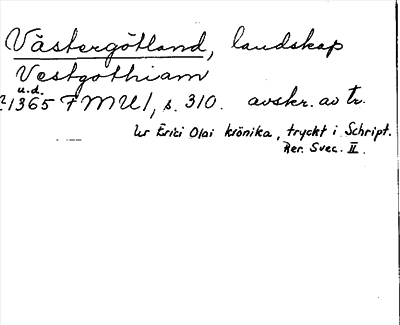 Västergötland, landskap
Vestgothiam
u.d.
1365 FMU I, s. 310. avskr. av tr.
Ur Erici Olai krönika, tryckt i Script.
Rer. Svec. II.